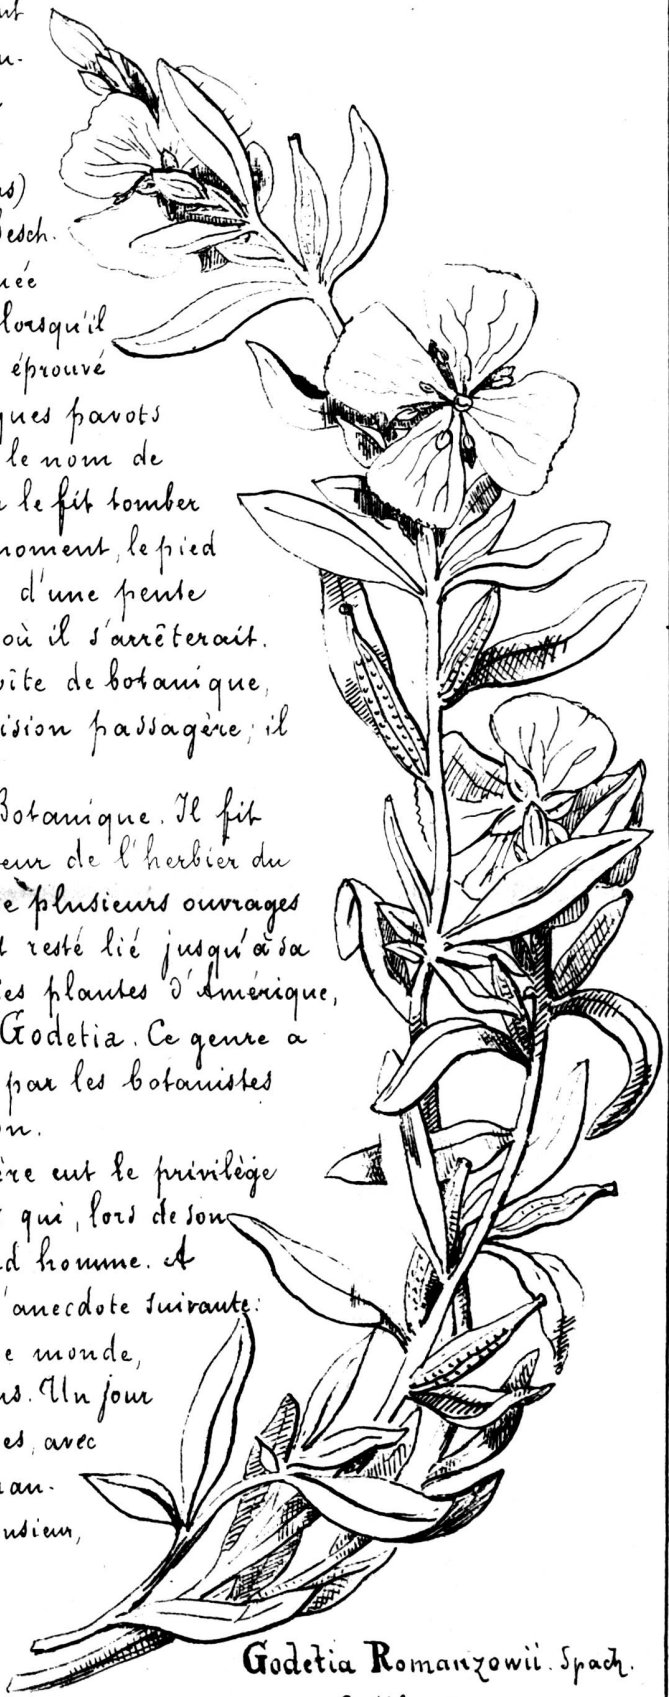 éprouvé
lorsqu'il
ques pavots
le nom de
le fit tomber
moment, le pied
d'une pente
où il s'arrêterait.
de botanique,
passagère; il
Botanique. Il fit
eur de l'herbier du
e plusieurs ouvrages
t resté lié jusqu'à sa
les plantes d'Amérique,
Godetia. Ce genre a
par les botanistes
ère eut le privilège
qui, lors de son
d homme. A
l'anecdote suivante:
e monde,
ns. Un jour
es, avec
nsieur,
Godetia Romanzowii. Spach.